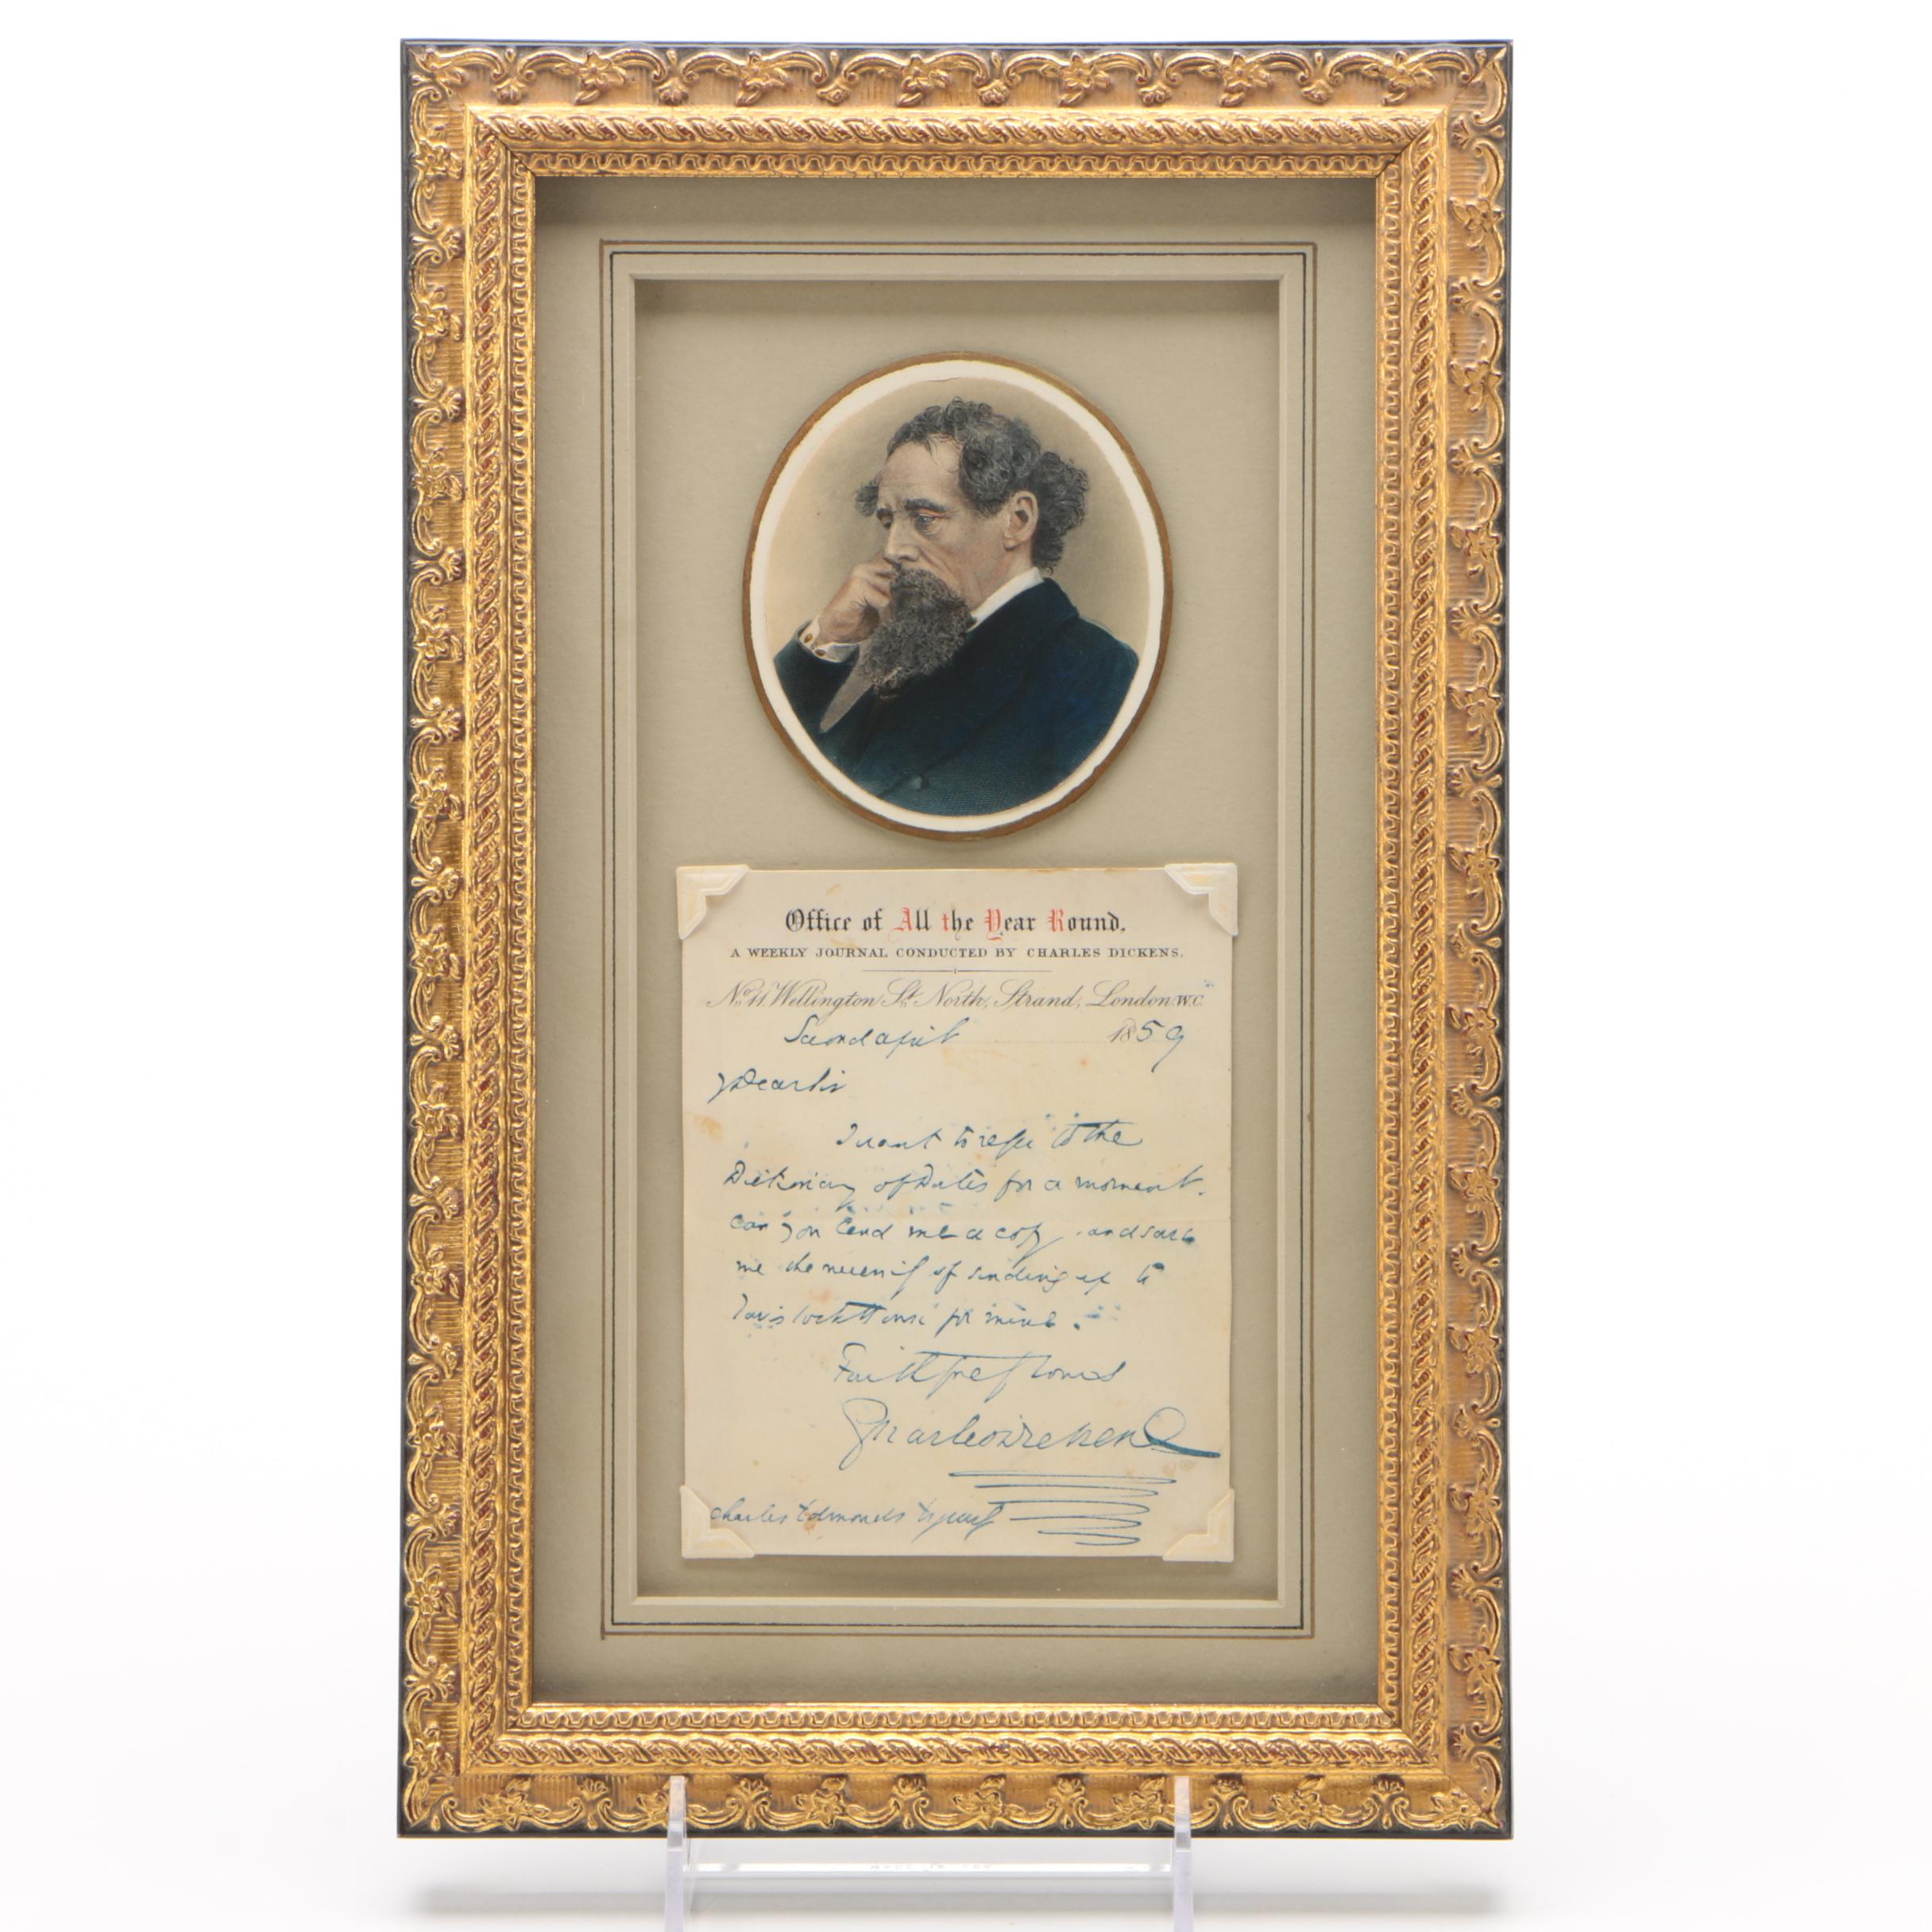 Office of All the Year Round.
A WEEKLY JOURNAL CONDUCTED BY CHARLES DICKENS.
No. 11. Wellington St. North, Strand, London. W.C.
Second April 1859
Dear Sir
I want to refer to the
Dictionary of Dates for a moment.
Can you lend me a copy and save
me the necessity of sending up to
Tavistock House for mine.
Faithfully Yours
Charles Dickens
Charles Edmonds Esquire